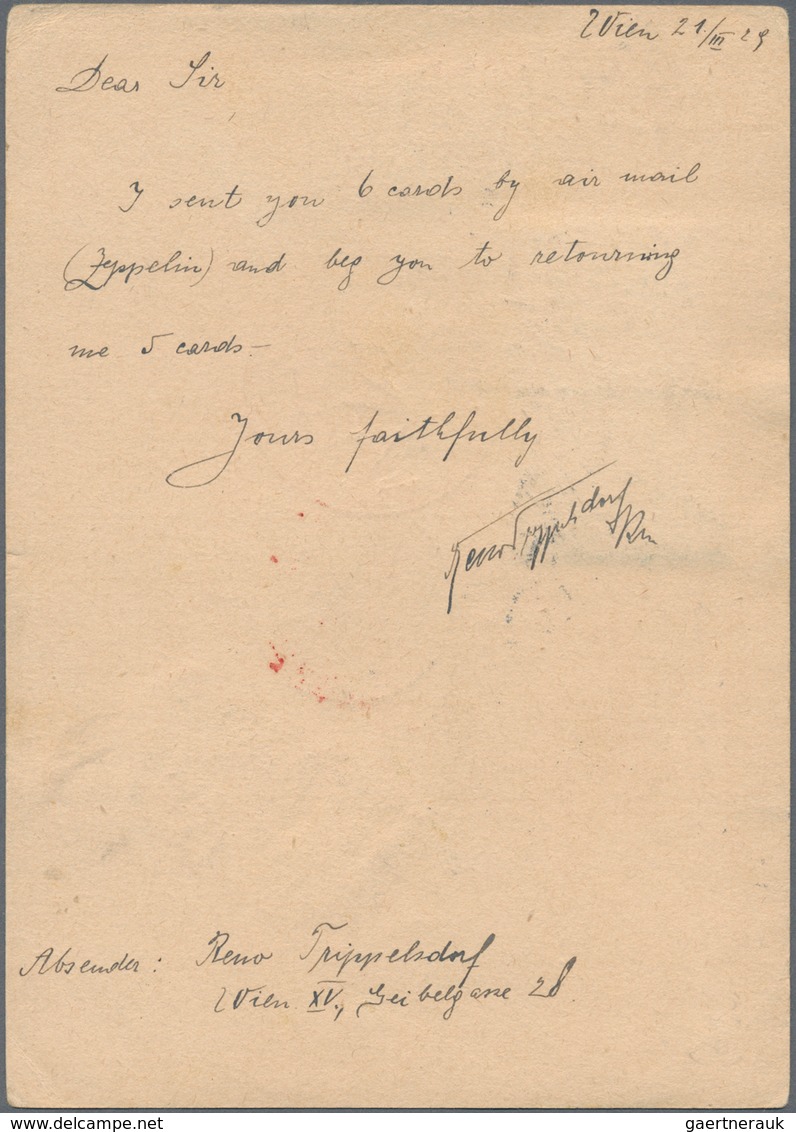 Wien 21./III 29
Dear Sir
I sent you 6 cards by air mail
(Zeppelin) and beg you to retourning
me 5 cards –
Yours faithfully
Reno Trippelsdorf
Absender: Reno Trippelsdorf
Wien XV., Geibelgasse 28.
gaertnerauk